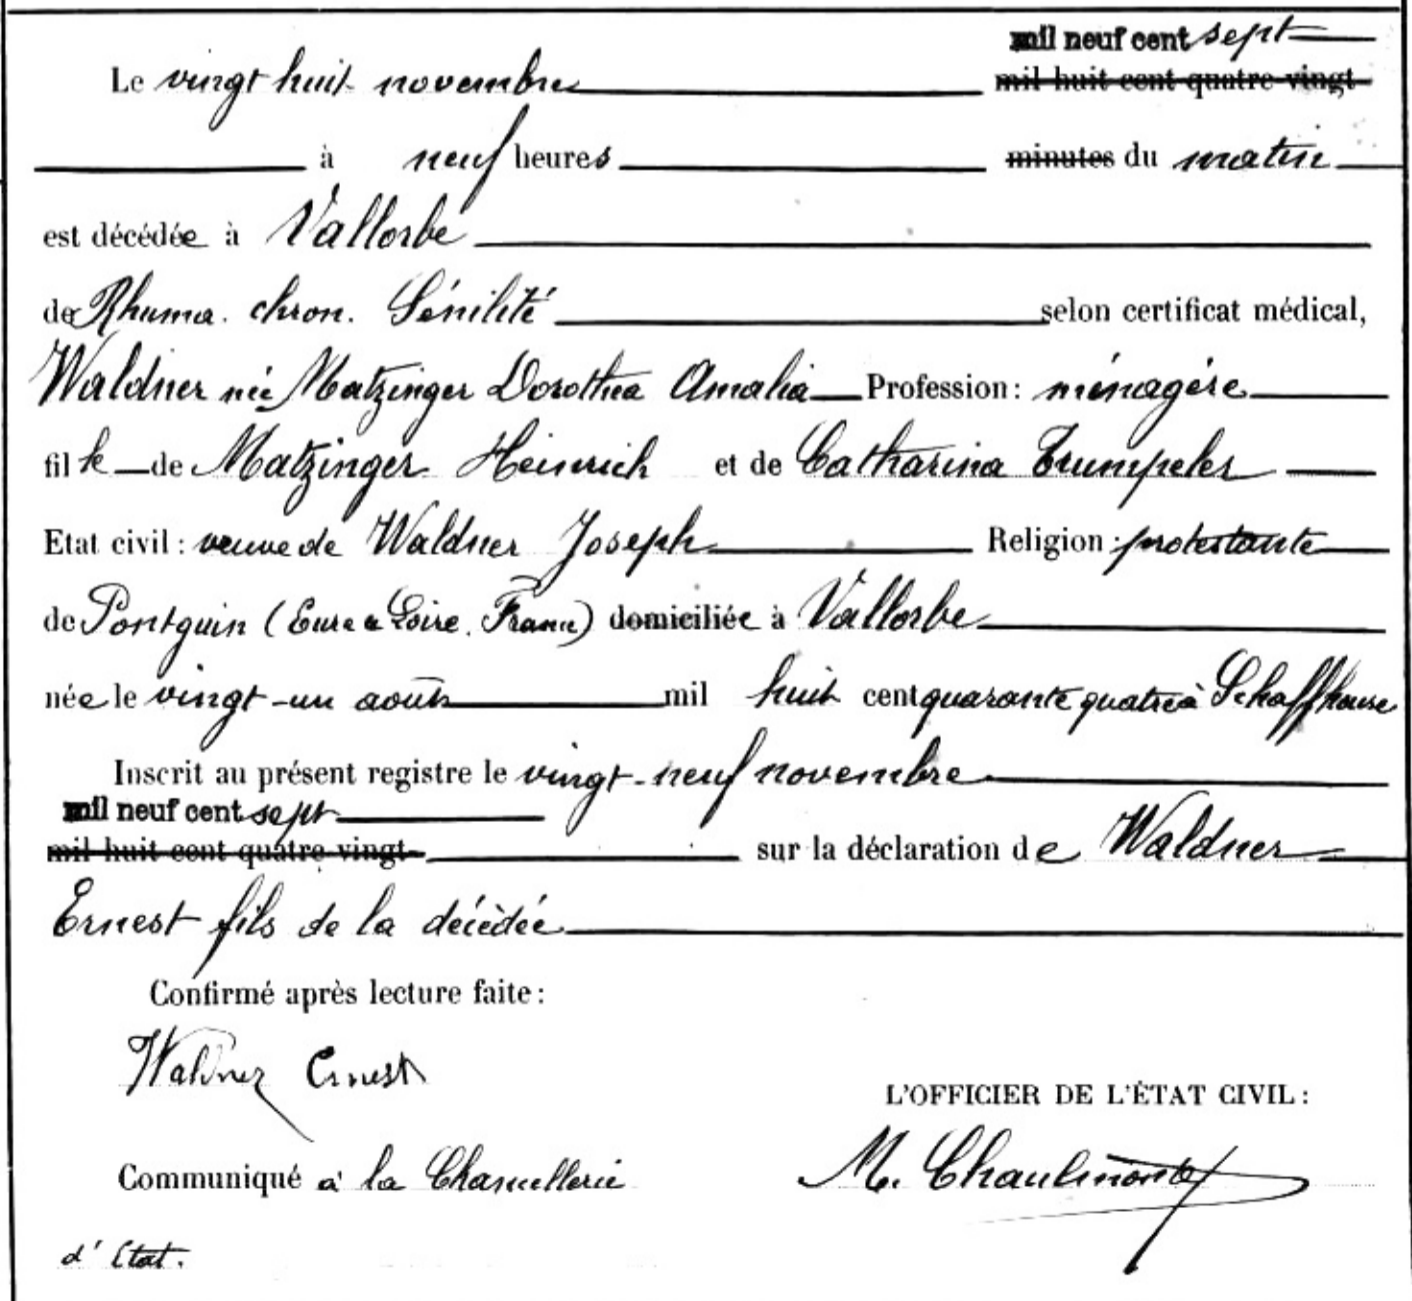 mil neuf cent sept
Le vingt huit novembre mil huit cent quatre-vingt
à neuf heures minutes du matin
est décédée à Vallorbe
de Rhuma. chron. Sénilité selon certificat médical,
Waldner née Matzinger Dorothea Amalia Profession: ménagère
fille de Matzinger Heinrich et de Catharina Trumpeler
Etat civil: veuve de Waldner Joseph Religion: protestante
de Pontguin (Eure & Loire. France) domiciliée à Vallorbe
née le vingt-un août mil huit cent quarante quatre à Schaffhouse
Inscrit au présent registre le vingt-neuf novembre
mil neuf cent sept
mil huit cent quatre-vingt- sur la déclaration de Waldner
Ernest fils de la décèdée
Confirmé après lecture faite:
Waldner Ernest
L'OFFICIER DE L'ÉTAT CIVIL:
Communiqué à la Chancellerie M.
d'Etat.